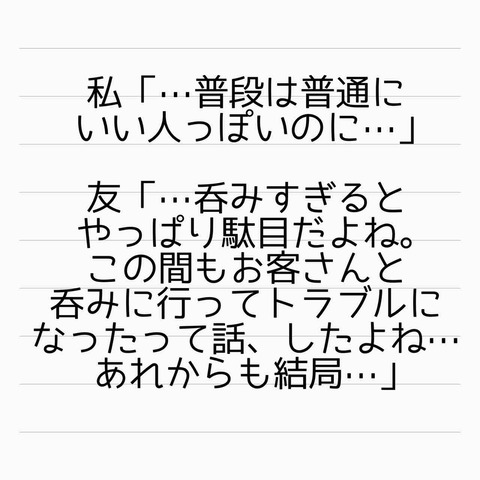 私「…普段は普通に
いい人っぽいのに…」
友「…呑みすぎると
やっぱり駄目だよね。
この間もお客さんと
呑みに行ってトラブルに
なったって話、したよね…
あれからも結局…」